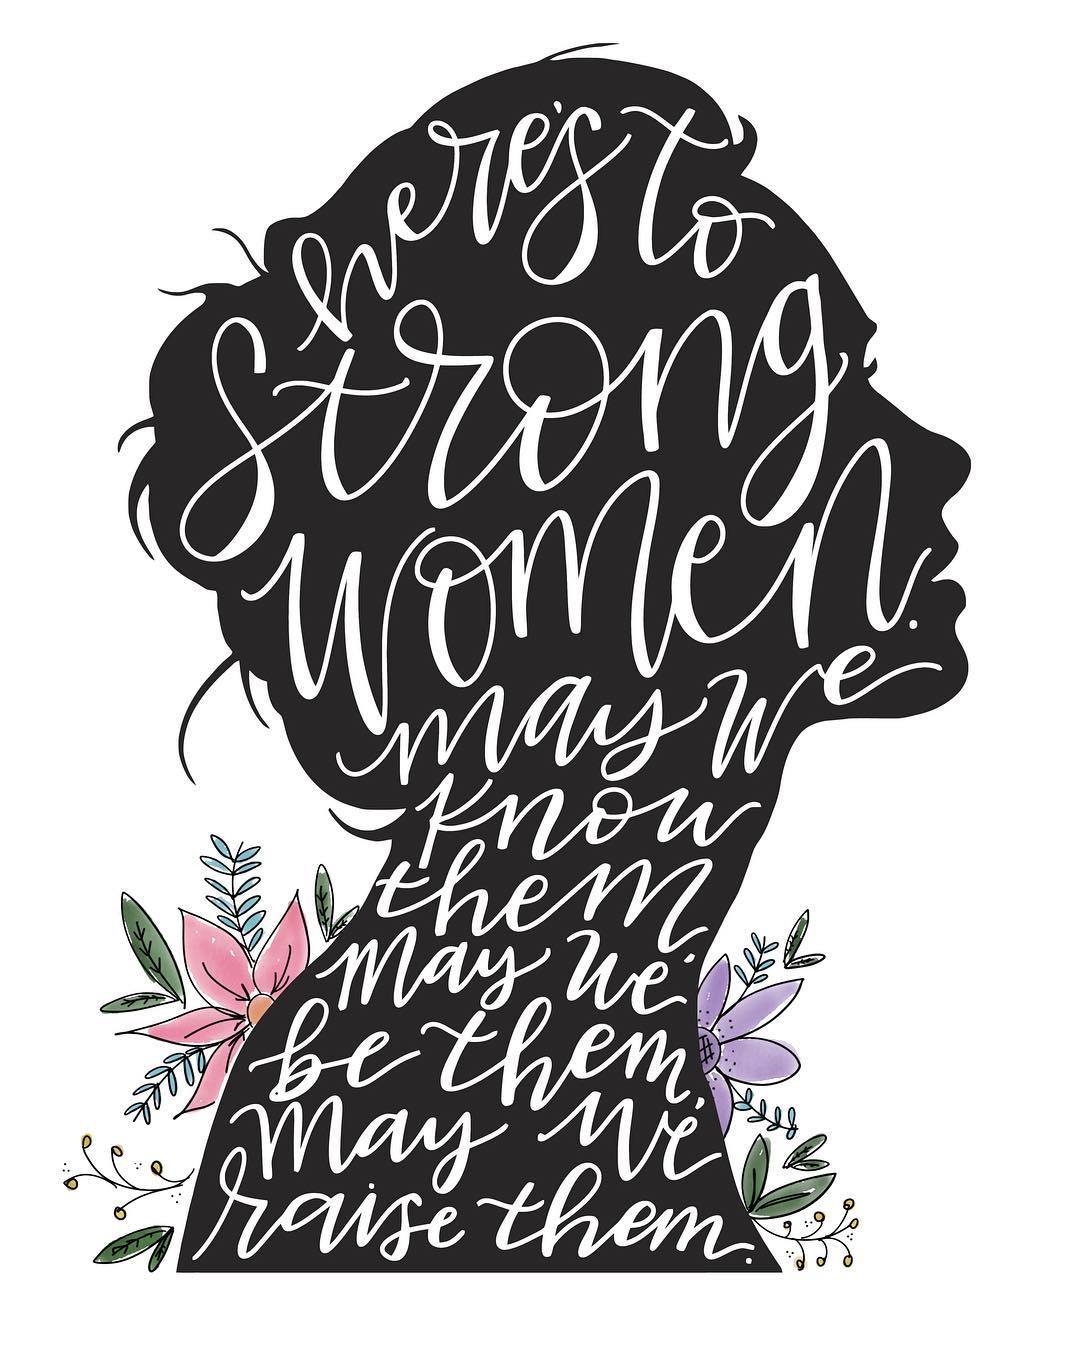 here's to
strong
women.
may we
know
them.
may we
be them.
may we
raise them.